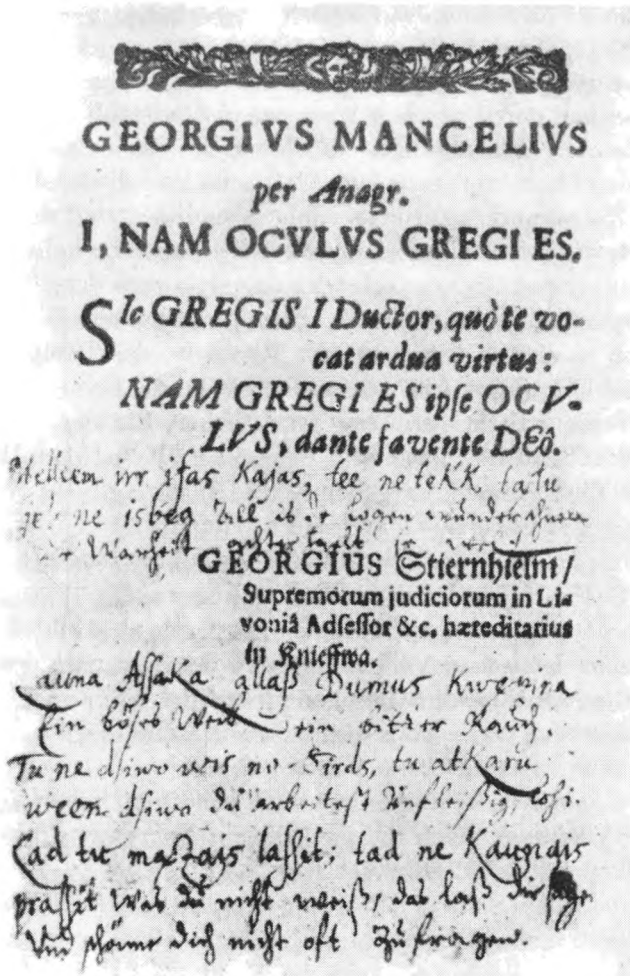 GEORGIVS MANCELIVS
per Anagr.
I, NAM OCVLVS GREGI ES.
SIc GREGIS I Ductor, quò te vo-
cat ardua virtus:
NAM GREGI ES ipſe OCV-
LVS, dante favente DEô.
irr ıſas Kajas, tee ne tekk tatu
ne isbeg
Warheit
GEORGIUS Stiernhielm/
Supremorum judiciorum in Li-
voniâ Adſeſſor &c. hæreditarius
in Knieffwa.
auna Aſſara allaß Dumus Kwempa
Ein böſes Weib ein bittrer Rauch.
Tu ne dſiwo wis no Sirds, tu atkaru
ween dſiwo du arbeiteſt Unfleißig,
Kad tu maſſais laſſit; tad ne Kaunais
praſſit Was du nicht weiſt, das laß dir ſage
Und ſchäme dich nicht oft zu fragen.